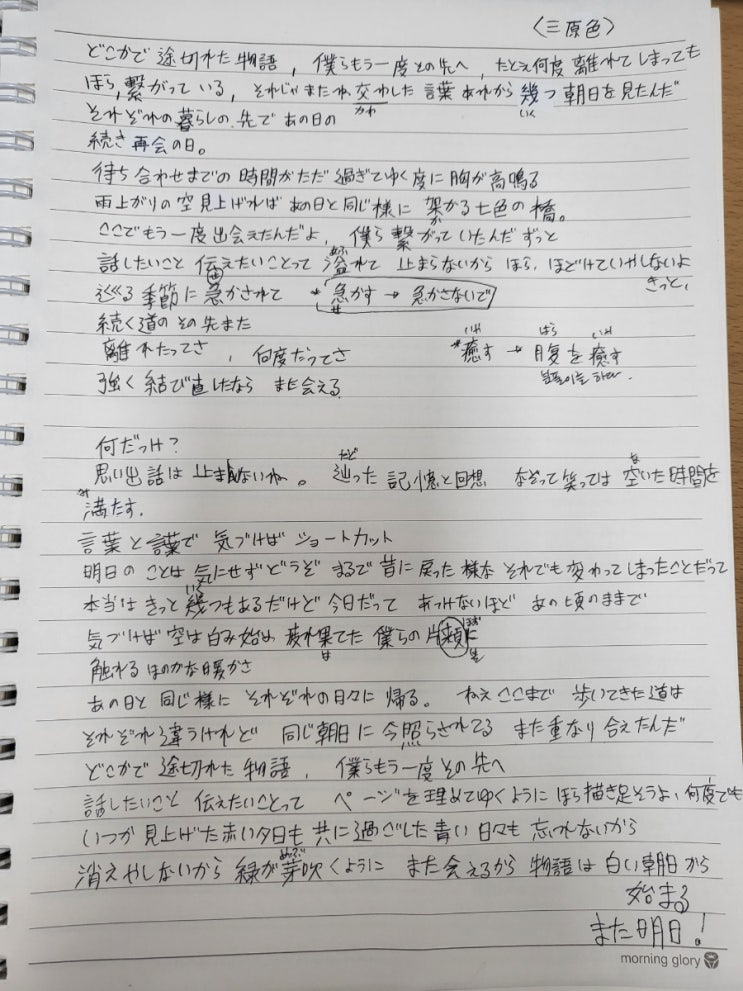 〈三原色〉
どこかで 途切れた 物語 , 僕らもう一度その先へ , たとえ何度 離れてしまっても
ほら, 繋がっている , それじゃまたね, 交わした 言葉 あれから 幾つ 朝日を見たんだ
かわ
いく
それぞれの 暮らしの 先で あの日の
続き 再会の日。
待ち合わせまでの 時間がただ 過ぎてゆく度に 胸が高鳴る
雨上がりの空 見上げれば あの日と同じ様に 架かる七色の橋。
か
ここでもう一度出会えたんだよ, 僕ら繋がっていたんだ ずっと
あふ
話したいこと 伝えたいことって 溢れて 止まらないから ほら, ほどけていやしないよ
きっと,
巡る 季節に 急かされて * 急かす → 急かさないで
せ
続く道の その先また
いや はら いや
離れたってさ , 何度だってさ *癒す → 腹を癒す
強く 結び直したなら また会える
何だっけ?
たど
思い出話は 止まんないね。 辿った 記憶と回想 なぞって笑っては 空いた時間を
あ
み
満たす,
言葉と言葉で 気づけば ショートカット
明日の ことは 気にせずどうぞ まるで 昔に 戻った様な それでも 変わってしまったことだって
いく
本当は きっと 幾つもあるだけど 今日だって あっけないほど あの頃のままで
気づけば 空は白み始め 疲れ果てた 僕らの 片頬に
は
ほほ
触れる ほのかな 暖かさ
あの日と 同じ様に それぞれの日々に 帰る。 ねえここまで 歩いてきた道は
それぞれ違うけれど 同じ朝日に 今照らされてる また重なり合えたんだ
どこかで 途切れた 物語 , 僕らもう一度その先へ
話したいこと 伝えたいことって ページを埋めてゆくように ほら描き足そうよ, 何度でも
いつか見上げた赤い夕日も 共に過ごした 青い 日々も 忘れないから
めぶ
消えやしないから 緑が芽吹くように また会えるから 物語は 白い朝日から
始まる
また明日!
morning glory